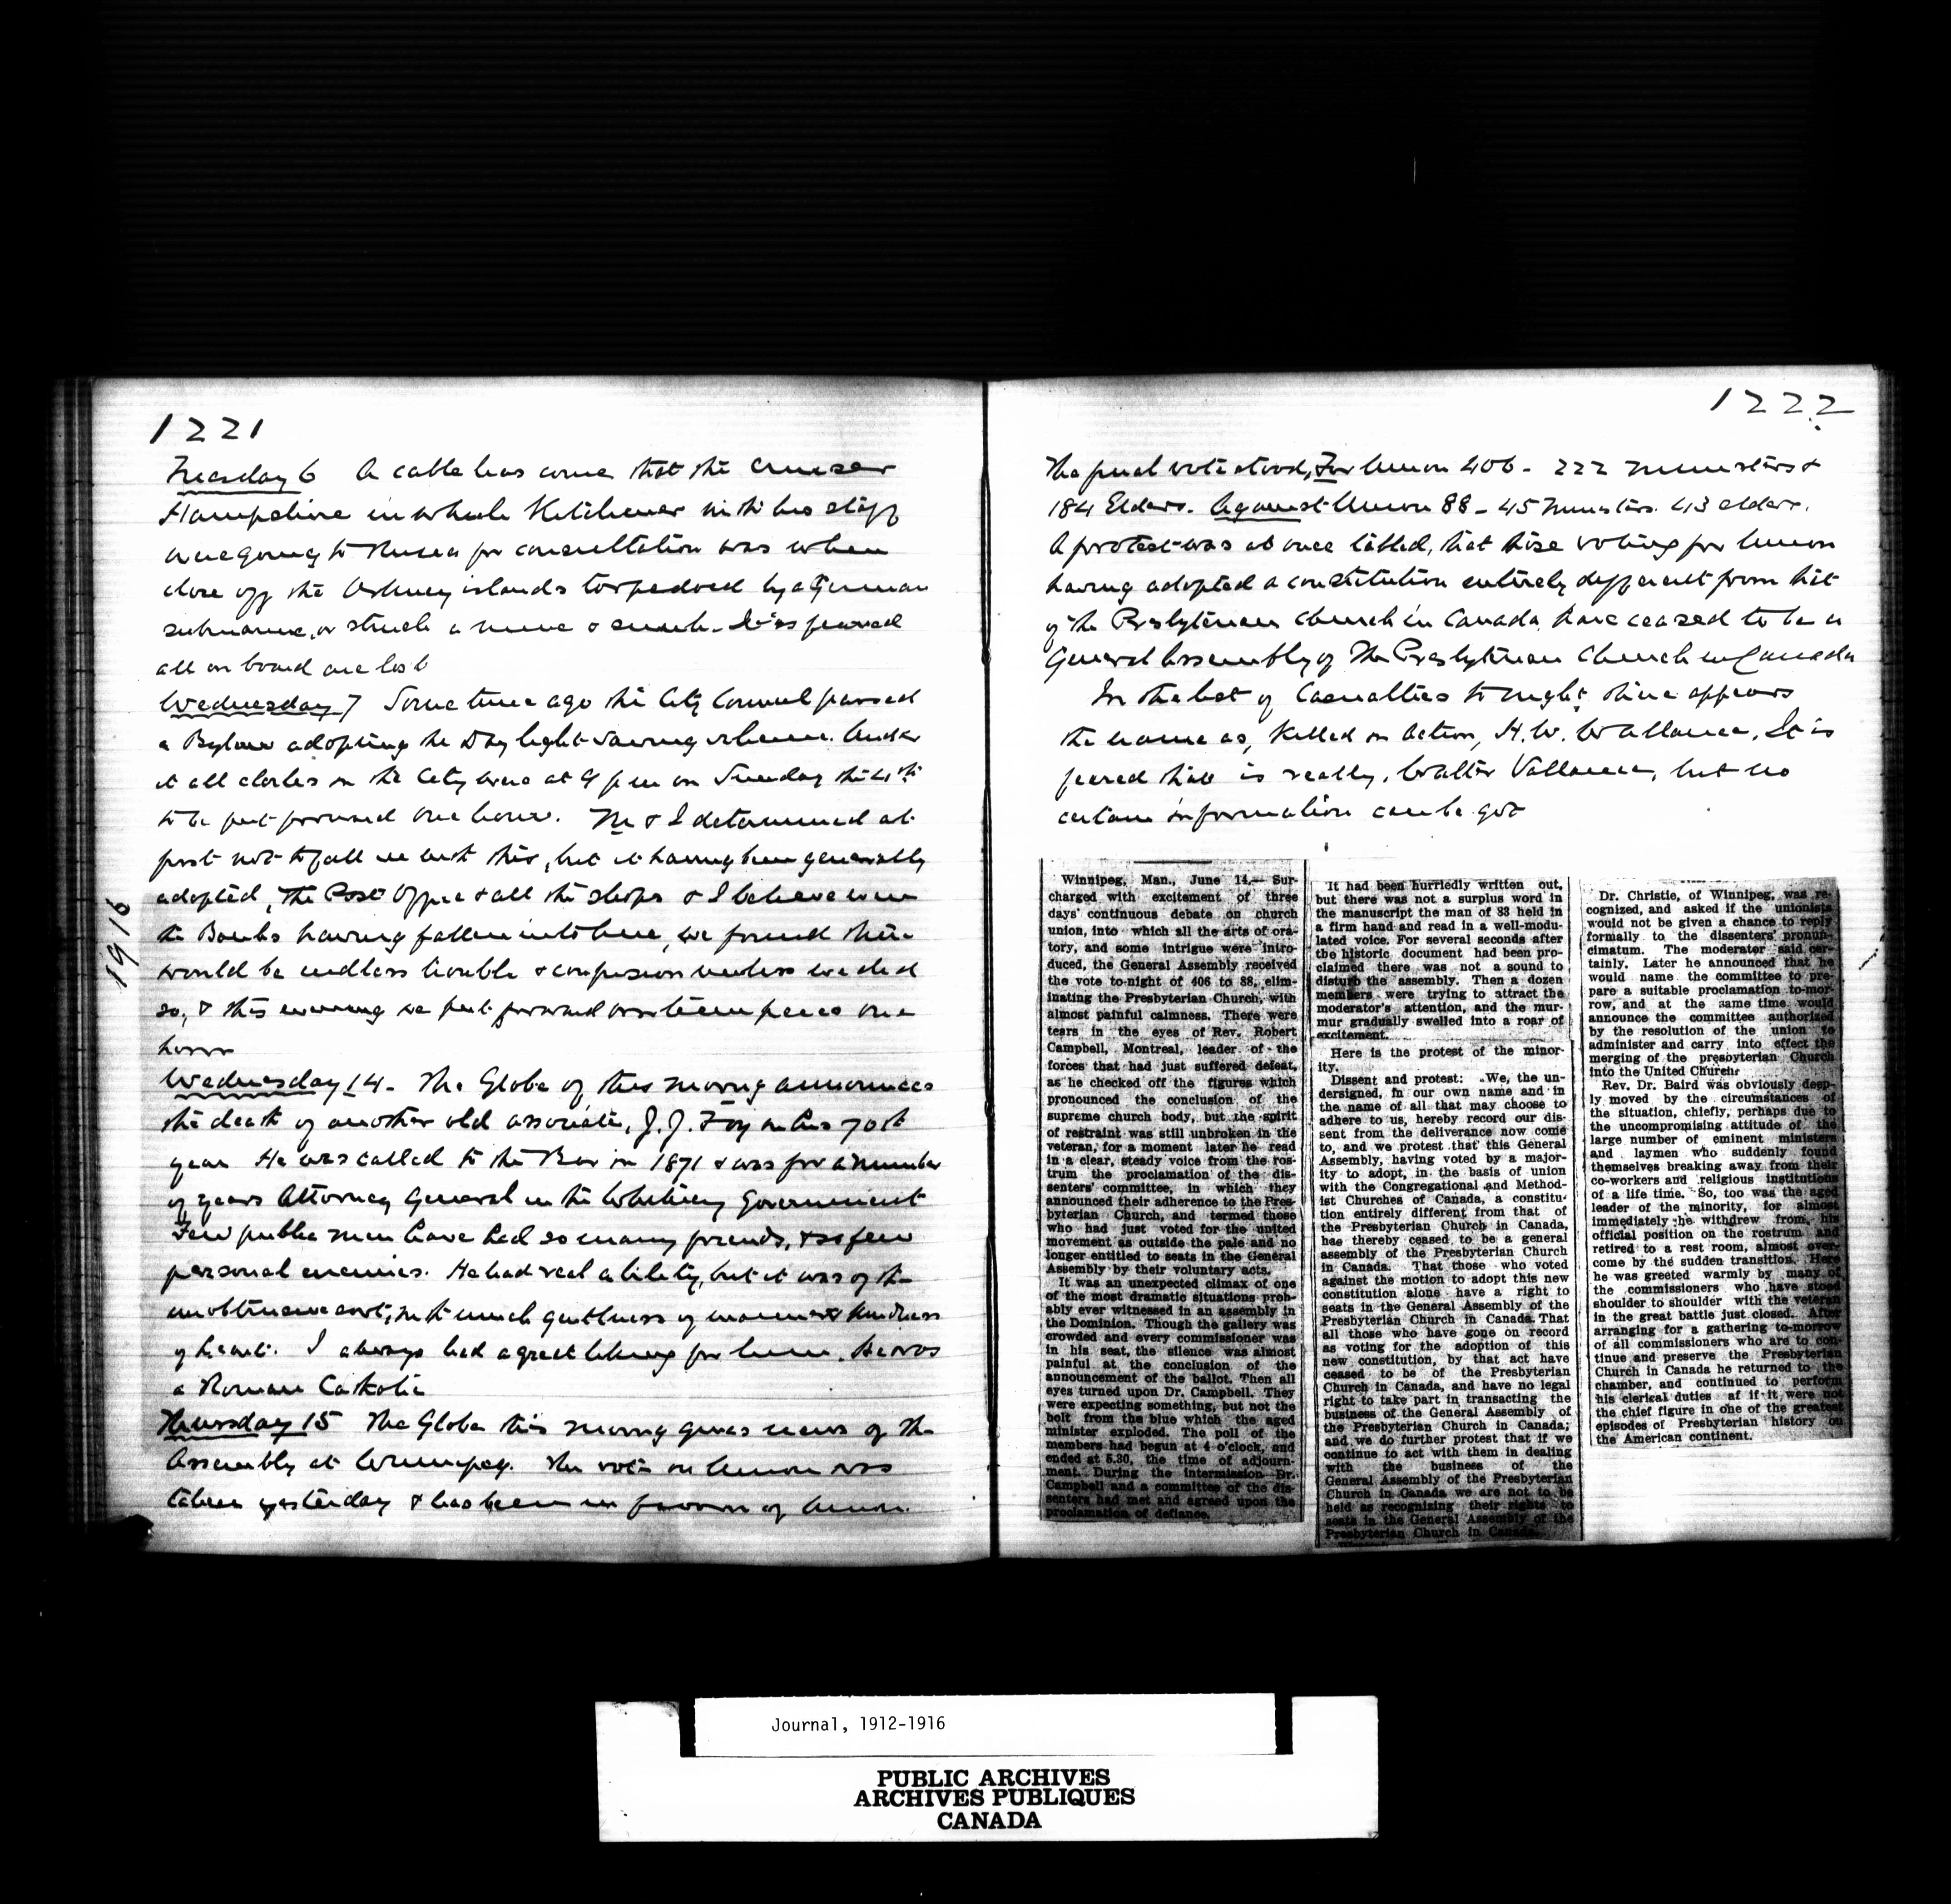 1221
Tuesday 6 A cable has come that the cruiser
Hampshire in which Kitchener with his staff
were going to Russia for consultation was when
close off the Orkney islands torpedoed by a German
submarine, or struck a mine & sunk. It is feared
all on board are lost
Wednesday 7 Some time ago the City Council passed
a Bylaw adopting the Day light saving scheme. Under
it all clocks in the City were at 9 pm on Sunday the 4th
to be put forward one hour. M & I determined at
first not to fall in with this, but it having been generally
adopted, the Post Office & all the shops & I believe even
the Banks having fallen into line, we found there
would be endless trouble & confusion unless we did
so, & this evening we put forward our timepieces one
hour
1916
Wednesday 14 - The Globe of this morning announces
the death of another old associate, J. J. Foy in his 70th
year He was called to the Bar in 1871 & was for a number
of years Attorney General in the Whitney Government
Few public men have had so many friends, & so few
personal enemies. He had real ability, but it was of the
unobtrusive sort, with much gentleness of manner & kindness
of heart. I always had a great liking for him. He was
a Roman Catholic
Thursday 15 The Globe this morning gives news of the
Assembly at Winnipeg. The vote on Union was
taken yesterday & has been in favour of Union.
1222
The final vote stood, For Union 406 - 222 ministers &
184 Elders. Against Union 88 - 45 ministers. 43 elders.
A protest was at once tabled, that those voting for Union
having adopted a constitution entirely different from that
of the Presbyterian Church in Canada, have ceased to be a
General Assembly of The Presbyterian Church in Canada
In the list of Casualties to night, there appears
the name as, Killed in Action, H. W. Wallance. It is
feared this is really, Walter Vallance, but no
certain information can be got
Winnipeg, Man., June 14.— Sur-
charged with excitement of three
days' continuous debate on church
union, into which all the arts of ora-
tory, and some intrigue were intro-
duced, the General Assembly received
the vote to-night of 406 to 88, elim-
inating the Presbyterian Church, with
almost painful calmness. There were
tears in the eyes of Rev. Robert
Campbell, Montreal, leader of the
forces that had just suffered defeat,
as he checked off the figures which
pronounced the conclusion of the
supreme church body, but the spirit
of restraint was still unbroken in the
veteran, for a moment later he read
in a clear, steady voice from the ros-
trum the proclamation of the dis-
senters' committee, in which they
announced their adherence to the Pres-
byterian Church, and termed those
who had just voted for the united
movement as outside the pale and no
longer entitled to seats in the General
Assembly by their voluntary acts.
It was an unexpected climax of one
of the most dramatic situations prob-
ably ever witnessed in an assembly in
the Dominion. Though the gallery was
crowded and every commissioner was
in his seat, the silence was almost
painful at the conclusion of the
announcement of the ballot. Then all
eyes turned upon Dr. Campbell. They
were expecting something, but not the
bolt from the blue which the aged
minister exploded. The poll of the
members had begun at 4 o'clock, and
ended at 5.30, the time of adjourn-
ment. During the intermission Dr.
Campbell and a committee of the dis-
senters had met and agreed upon the
proclamation of defiance.
It had been hurriedly written out,
but there was not a surplus word in
the manuscript the man of 83 held in
a firm hand and read in a well-modu-
lated voice. For several seconds after
the historic document had been pro-
claimed there was not a sound to
disturb the assembly. Then a dozen
members were trying to attract the
moderator's attention, and the mur-
mur gradually swelled into a roar of
excitement.
Here is the protest of the minor-
ity.
Dissent and protest: We, the un-
dersigned, in our own name and in
the name of all that may choose to
adhere to us, hereby record our dis-
sent from the deliverance now come
to, and we protest that this General
Assembly, having voted by a major-
ity to adopt, in the basis of union
with the Congregational and Method-
ist Churches of Canada, a constitu-
tion entirely different from that of
the Presbyterian Church in Canada,
has thereby ceased to be a general
assembly of the Presbyterian Church
in Canada. That those who voted
against the motion to adopt this new
constitution alone have a right to
seats in the General Assembly of the
Presbyterian Church in Canada. That
all those who have gone on record
as voting for the adoption of this
new constitution, by that act have
ceased to be of the Presbyterian
Church in Canada, and have no legal
right to take part in transacting the
business of the General Assembly of
the Presbyterian Church in Canada;
and we do further protest that if we
continue to act with them in dealing
with the business of the
General Assembly of the Presbyterian
Church in Canada we are not to be
held as recognizing their rights to
seats in the General Assembly of the
Presbyterian Church in Canada.
Dr. Christie, of Winnipeg, was re-
cognized, and asked if the unionists
would not be given a chance to reply
formally to the dissenters' pronun-
cimatum. The moderator said cer-
tainly. Later he announced that he
would name the committee to pre-
pare a suitable proclamation to-mor-
row, and at the same time would
announce the committee authorized
by the resolution of the union to
administer and carry into effect the
merging of the presbyterian Church
into the United Church.
Rev. Dr. Baird was obviously deep-
ly moved by the circumstances of
the situation, chiefly, perhaps due to
the uncompromising attitude of the
large number of eminent ministers
and laymen who suddenly found
themselves breaking away from their
co-workers and religious institutions
of a life time. So, too was the aged
leader of the minority, for almost
immediately he withdrew from his
official position on the rostrum and
retired to a rest room, almost over-
come by the sudden transition. Here
he was greeted warmly by many of
the commissioners who have stood
shoulder to shoulder with the veteran
in the great battle just closed. After
arranging for a gathering to-morrow
of all commissioners who are to con-
tinue and preserve the Presbyterian
Church in Canada he returned to the
chamber, and continued to perform
his clerical duties af if it were not
the chief figure in one of the greatest
episodes of Presbyterian history on
the American continent.
Journal, 1912-1916
PUBLIC ARCHIVES
ARCHIVES PUBLIQUES
CANADA